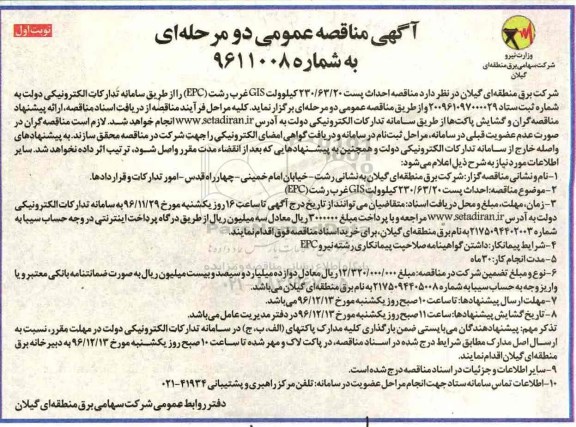 نوبت اول
آگهی مناقصه عمومی دو مرحله‌ای
به شماره ۹۶۱۱۰۰۸
وزارت نیرو
شرکت سهامی برق منطقه‌ای
گیلان
شرکت برق منطقه‌ای گیلان در نظر دارد مناقصه احداث پست ۲۳۰/۶۳/۲۰ کیلوولت GIS غرب رشت (EPC) را از طریق سامانه تدارکات الکترونیکی دولت به
شماره ثبت ستاد ۲۰۰۹۶۱۰۹۷۰۰۰۰۲۹ و از طریق مناقصه عمومی دو مرحله‌ای برگزار نماید. کلیه مراحل فرآیند مناقصه از دریافت اسناد مناقصه، ارائه پیشنهاد
مناقصه گران و گشایش پاکت‌ها از طریق سامانه تدارکات الکترونیکی دولت به آدرس www.setadiran.ir انجام خواهد شد. لازم است مناقصه گران در
صورت عدم عضویت قبلی در سامانه، مراحل ثبت‌نام در سامانه و دریافت گواهی امضای الکترونیکی را جهت شرکت در مناقصه محقق سازند. به پیشنهادهای
واصله خارج از سامانه تدارکات الکترونیکی دولت و همچنین به پیشنهادهایی که بعد از انقضاء مدت مقرر واصل شود، ترتیب اثر داده نخواهد شد. سایر
اطلاعات مورد نیاز به شرح ذیل اعلام می‌شود:
۱- نام و نشانی مناقصه گزار: شرکت برق منطقه‌ای گیلان به نشانی رشت - خیابان امام خمینی - چهارراه قدس - امور تدارکات و قراردادها.
۲- موضوع مناقصه: احداث پست ۲۳۰/۶۳/۲۰ کیلوولت GIS غرب رشت (EPC)
۳- زمان، مهلت، مبلغ و محل دریافت اسناد: متقاضیان می توانند از تاریخ درج آگهی تا ساعت ۱۶ روز یکشنبه مورخ ۹۶/۱۱/۲۹ به سامانه تدارکات الکترونیکی
دولت به آدرس www.setadiran.ir مراجعه و با پرداخت مبلغ ۳۰۰۰۰۰۰ ریال معادل سه میلیون ریال از طریق درگاه پرداخت اینترنتی در وجه حساب سیبا به
شماره ۲۱۷۵۰۹۴۴۰۲۰۰۳ به نام برق منطقه‌ای گیلان، برای خرید اسناد مناقصه فوق اقدام نمایند.
۴- شرایط پیمانکار: داشتن گواهینامه صلاحیت پیمانکاری رشته نیرو EPC
۵- مدت انجام کار: ۳۰ ماه
۶- نوع و مبلغ تضمین شرکت در مناقصه: مبلغ ۱۲/۳۲۰/۰۰۰/۰۰۰ ریال معادل دوازده میلیارد و سیصد و بیست میلیون ریال به صورت ضمانتنامه بانکی معتبر و یا
واریز وجه به حساب سیبا به شماره ۲۱۷۵۰۹۴۴۰۵۰۰۸ به نام برق منطقه‌ای گیلان می‌باشد.
۷- مهلت ارسال پیشنهادها: تا ساعت ۱۰ صبح روز یکشنبه مورخ ۹۶/۱۲/۱۳ می‌باشد.
۸- تاریخ گشایش پیشنهادها: ساعت ۱۱ صبح روز یکشنبه مورخ ۹۶/۱۲/۱۳ در دفتر مدیریت عامل می‌باشد.
تذکر مهم: پیشنهاددهندگان می‌بایستی ضمن بارگذاری کلیه مدارک پاکتهای (الف، ب، ج) در سامانه تدارکات الکترونیکی دولت در مهلت مقرر، نسبت به
ارسال اصل مدارک مطابق شرایط درج شده در اسناد مناقصه، در پاکت لاک و مهر شده تا ساعت ۱۰ صبح روز یکشنبه مورخ ۹۶/۱۲/۱۳ به دبیرخانه برق
منطقه‌ای گیلان اقدام نمایند.
۹- سایر اطلاعات و جزئیات در اسناد مناقصه درج شده است.
۱۰- اطلاعات تماس سامانه ستاد جهت انجام مراحل عضویت در سامانه: تلفن مرکز راهبری و پشتیبانی ۴۱۹۳۴-۰۲۱
دفتر روابط عمومی شرکت سهامی برق منطقه‌ای گیلان